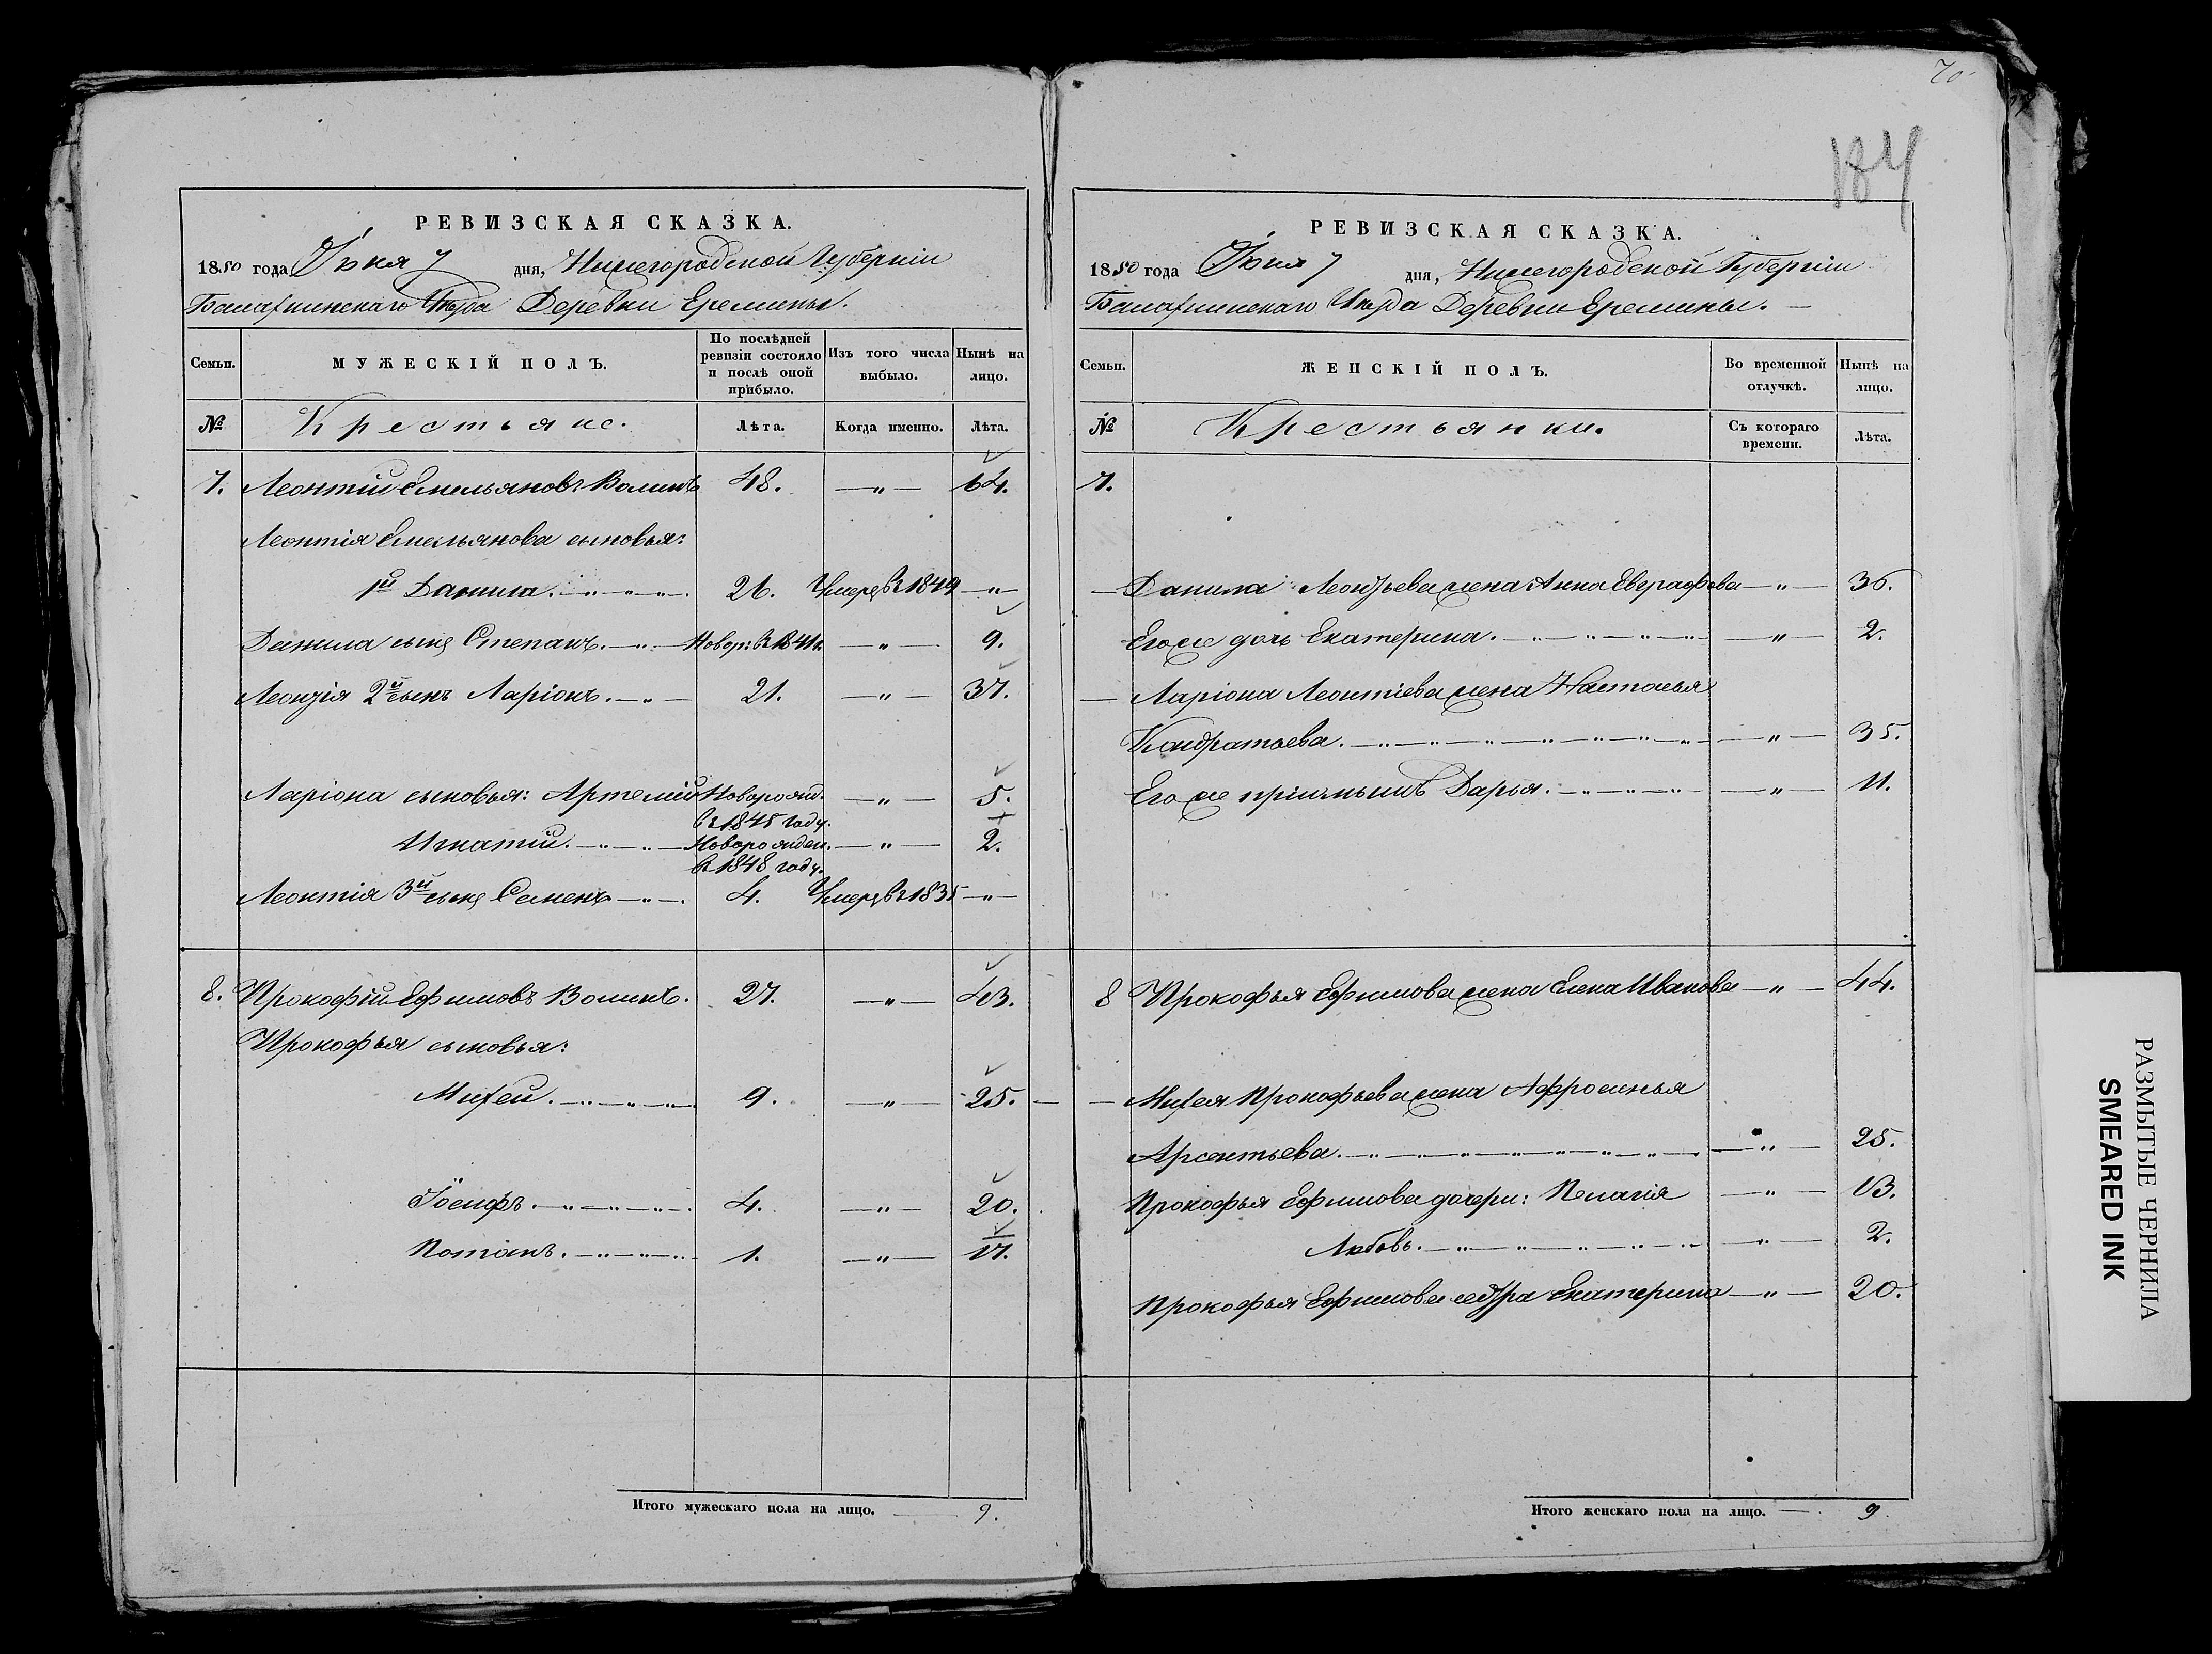 70
184
РЕВИЗСКАЯ СКАЗКА.
1850 года Іюня 7 дня, Нижегородской Губерніи
Балахнинскаго Уѣзда Деревни Еремины.
Семьи.
МУЖЕСКІЙ ПОЛЪ.
По послѣдней ревизіи состояло и послѣ оной прибыло.
Изъ того числа выбыло.
Нынѣ на лицо.
№ Крестьяне. Лѣта. Когда именно. Лѣта.
7. Леонтій Емельяновъ Волинъ 48. — " — 64.
Леонтія Емельянова сыновья:
1й Данила. 26. Умеръ въ 1849 — " —
Данила сынъ Степанъ. Новор: въ 1841 г. — " — 9.
Леонтія 2й сынъ Ларіонъ. 21. — " — 37.
Ларіона сыновья: Артемій Новорожд. — " — 5.
въ 1845 году.
Игнатій. Новорожден. — " — 2.
въ 1848 году.
Леонтія 3й сынъ Семенъ 4. Умеръ въ 1835 — " —
8. Прокофій Ефимовъ Волинъ. 27. — " — 43.
Прокофья сыновья:
Михей. 9. — " — 25.
Іосифъ. 4. — " — 20.
Потапъ. 1. — " — 17.
Итого мужескаго пола на лицо. 9.
РЕВИЗСКАЯ СКАЗКА.
1850 года Іюня 7 дня, Нижегородской Губерніи
Балахнинскаго Уѣзда Деревни Еремины.
Семьи.
ЖЕНСКІЙ ПОЛЪ.
Во временной отлучкѣ.
Нынѣ на лицо.
№ Крестьянки. Съ котораго времени. Лѣта.
7.
Данила Леонтьева жена Анна Евграфова — " — 36.
Его же дочь Екатерина. — " — 2.
Ларіона Леонтіева жена Настасья
Кондратьева. — " — 35.
Его же пріимышъ Дарья. — " — 11.
8 Прокофья Ефимова жена Елена Иванова — " — 44.
Михея Прокофьева жена Афросинья
Арсентьева. — " — 25.
Прокофья Ефимова дочери: Пелагія — " — 13.
Любовь. — " — 2.
Прокофья Ефимова сестра Екатерина — " — 20.
Итого женскаго пола на лицо. 9.
РАЗМЫТЫЕ ЧЕРНИЛА
SMEARED INK